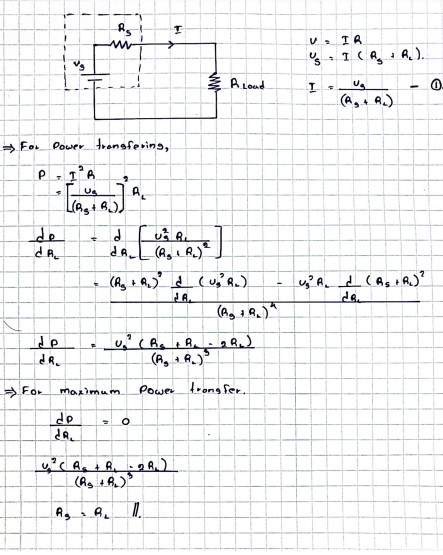 R_s I
v_s
R Load
v = IR
v_s = I (R_s + R_L).
I = v_s / (R_s + R_L) - ①
⇒ For Power transfering,
P = I² R
= [v_s / (R_s + R_L)]² R_L
dP/dR_L = d/dR_L [v_s² R_L / (R_s + R_L)²]
= ((R_s + R_L)² d/dR_L (v_s² R_L) - v_s² R_L d/dR_L (R_s + R_L)²) / (R_s + R_L)⁴
dP/dR_L = v_s² (R_s + R_L - 2R_L) / (R_s + R_L)³
⇒ For maximum Power transfer.
dP/dR_L = 0
v_s² (R_s + R_L - 2R_L) / (R_s + R_L)³
R_s = R_L //.